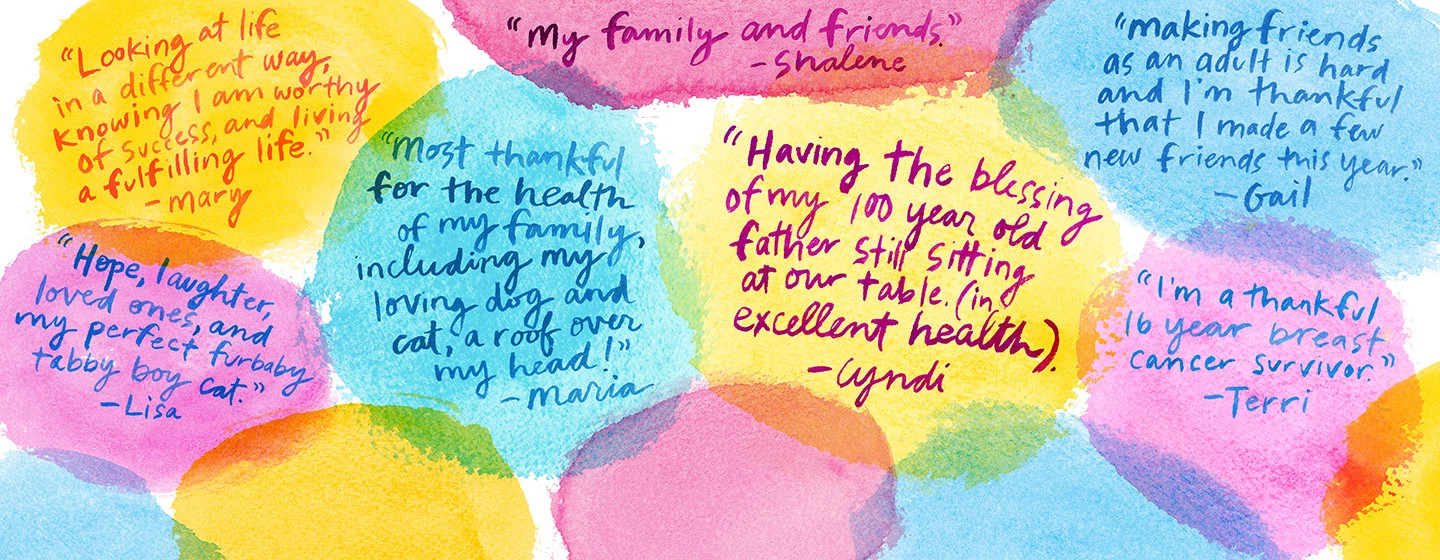 "Looking at life
in a different way,
knowing I am worthy
of success, and living
a fulfilling life."
-mary
"My family and friends."
-Shalene
"making friends
as an adult is hard
and I'm thankful
that I made a few
new friends this year."
-Gail
"Most thankful
for the health
of my family,
including my
loving dog and
cat, a roof over
my head!"
-maria
"Having the blessing
of my 100 year old
father still sitting
at our table. (in
excellent health).
-Cyndi
"Hope, laughter,
loved ones, and
my perfect furbaby
tabby boy cat."
-Lisa
"I'm a thankful
16 year breast
cancer survivor."
-Terri